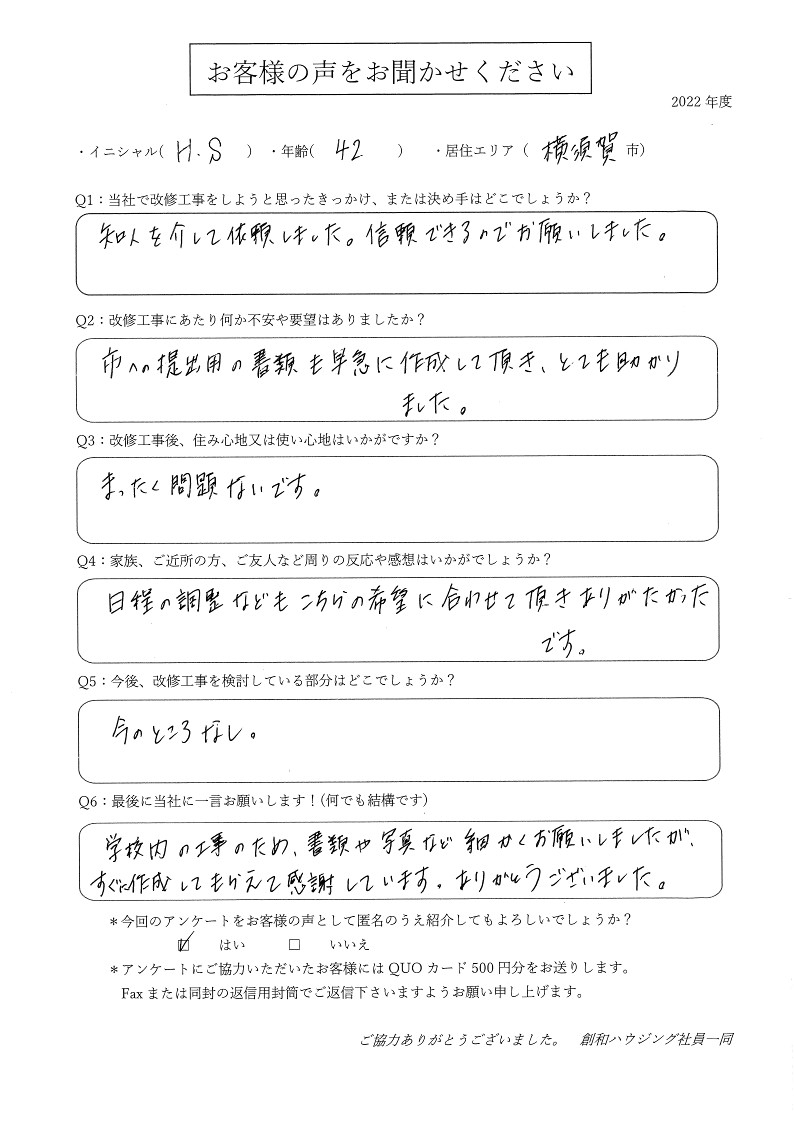 お客様の声をお聞かせください
2022 年度
・イニシャル( H.S ) ・年齢( 42 ) ・居住エリア（ 横須賀 市）
Q1：当社で改修工事をしようと思ったきっかけ、または決め手はどこでしょうか？
知人を介して依頼しました。信頼できるのでお願いしました。
Q2：改修工事にあたり何か不安や要望はありましたか？
市への提出用の書類も早急に作成して頂き、とても助かり
ました。
Q3：改修工事後、住み心地又は使い心地はいかがですか？
まったく問題ないです。
Q4：家族、ご近所の方、ご友人など周りの反応や感想はいかがでしょうか？
日程の調整などもこちらの希望に合わせて頂きありがたかった
です。
Q5：今後、改修工事を検討している部分はどこでしょうか？
今のところなし。
Q6：最後に当社に一言お願いします！(何でも結構です)
学校内の工事のため、書類や写真など細かくお願いしましたが、
すぐに作成してもらえて感謝しています。ありがとうございました。
＊今回のアンケートをお客様の声として匿名のうえ紹介してもよろしいでしょうか？
☑ はい □ いいえ
＊アンケートにご協力いただいたお客様には QUO カード 500 円分をお送りします。
Fax または同封の返信用封筒でご返信下さいますようお願い申し上げます。
ご協力ありがとうございました。 創和ハウジング社員一同